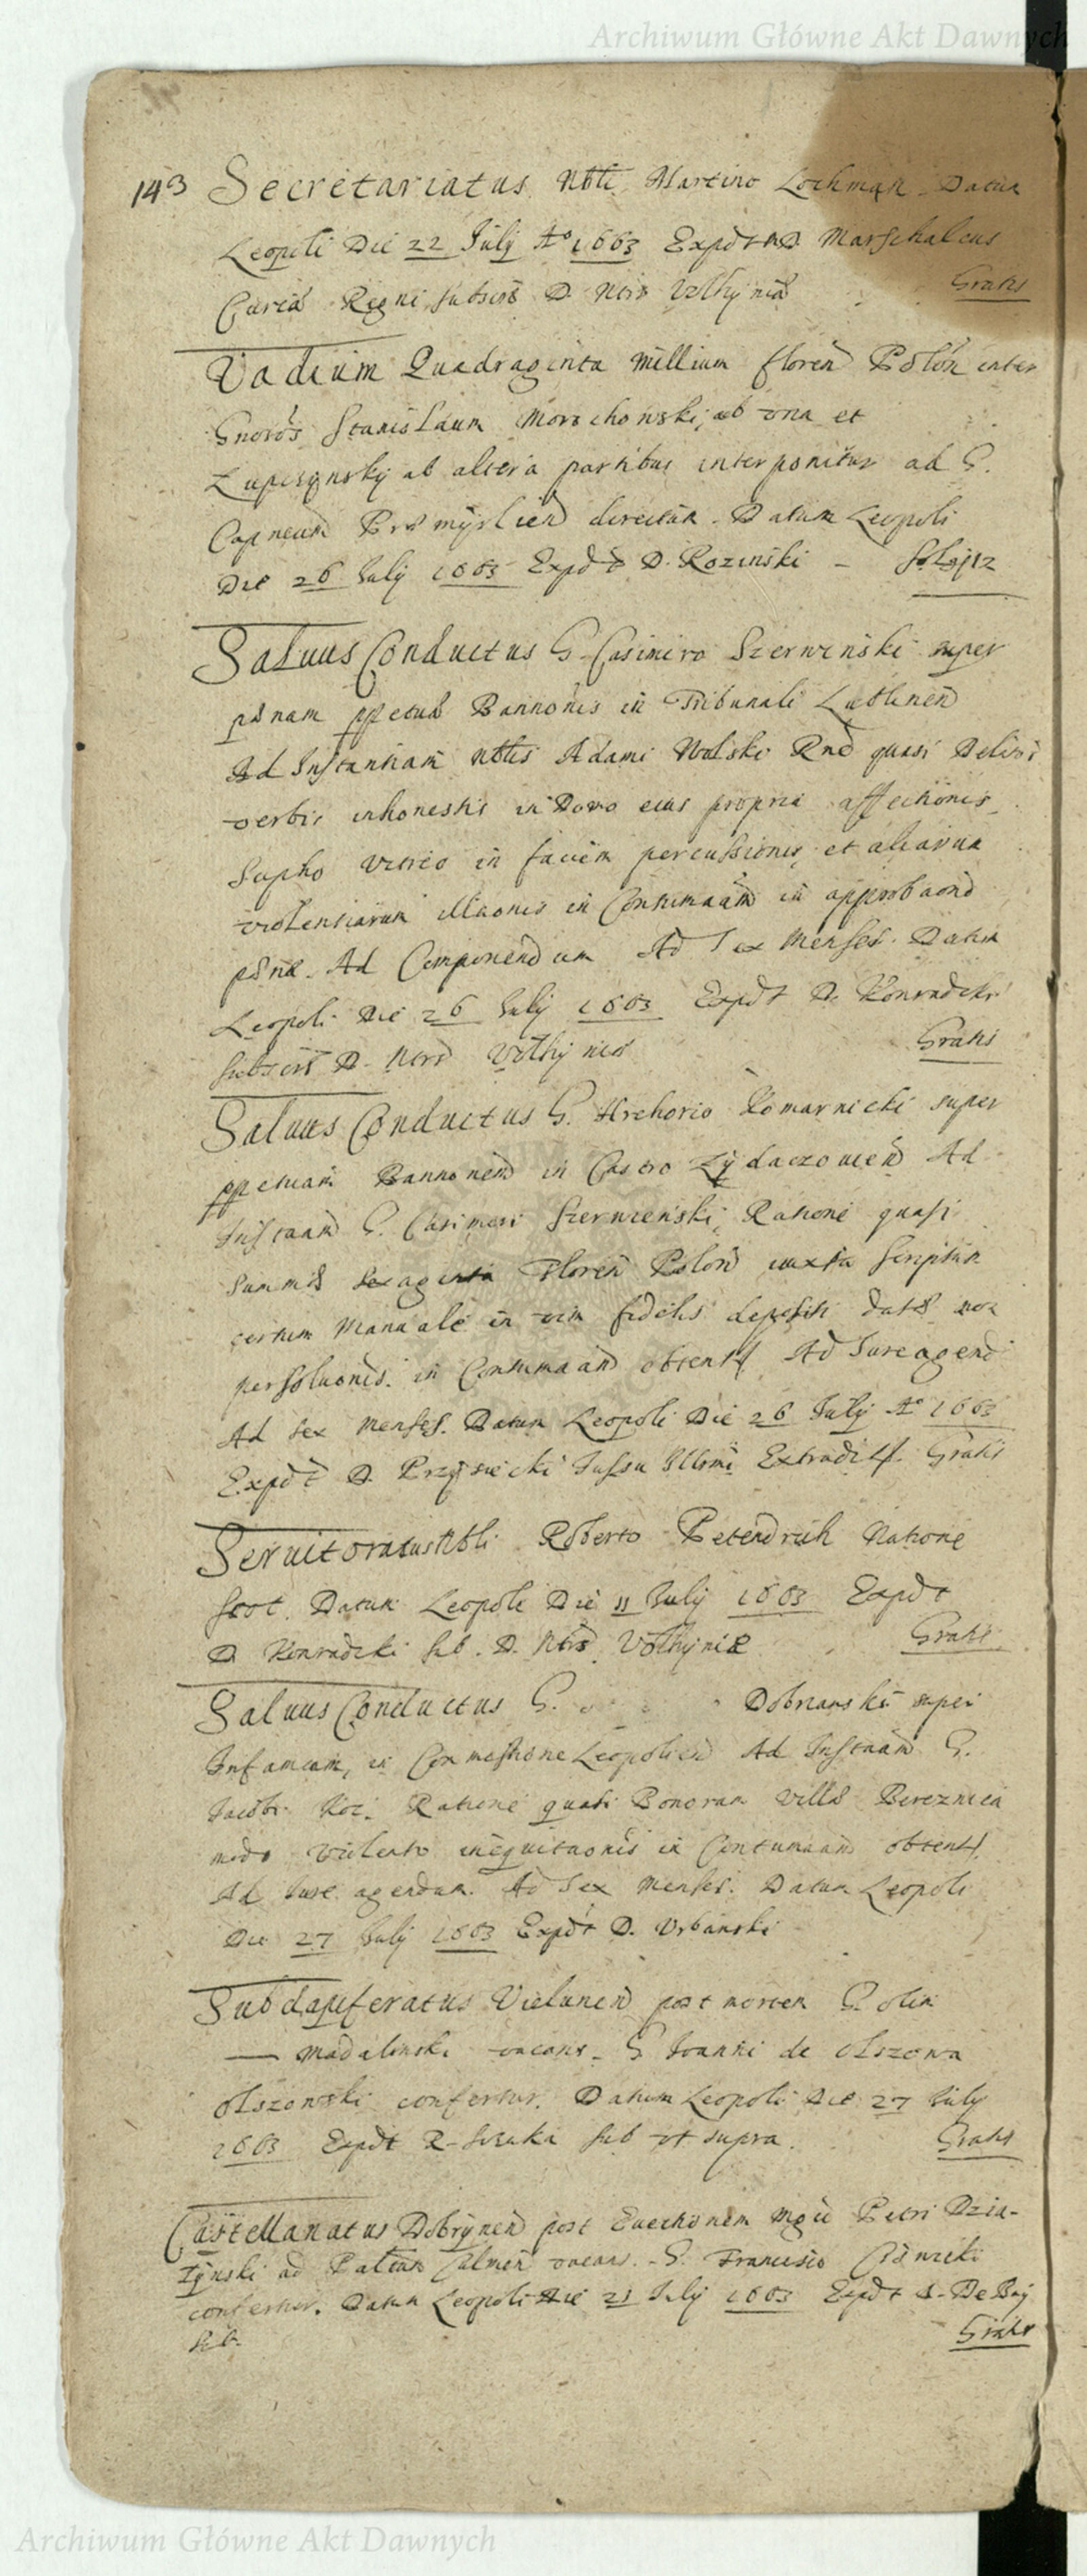 Archiwum Główne Akt Dawnych
143 Secretariatus Nbli Martino Lochman. Datum
Leopoli Die 22 July Ao 1663 Expdt D. Marschalcus
Curiæ Regni subscrõ D. Ntrõ Volhyniæ Gratis
Vadium Quadraginta Millium floren Polon inter
Gnoros Stanislaum Morochowski, ab una et
Lupczynsky ab altera partibus interponitur ad G.
Capneum Præmyslien directum. Datum Leopoli
Die 26 July 1663 Expdt D. Rozinski -
Saluus Conductus G. Casimiro Szerwinski super
pænam ppetuæ Bannonis in Tribunali Lublinen
Ad Instantiam Nblis Adami Wolski Rne quasi
verbis inhonestis in Domo eius propria affectionis
Scypho vitreo in faciem percussionis, et aliarum
violentiarum illaonis in Contumaam in approbaond
pæna. Ad Componendum Ad Sex Menses. Datum
Leopoli Die 26 July 1663 Expdt D. Konradzki
subscrõ D. Ntrõ Volhyniæ Gratis
Saluus Conductus G. Hrehorio Komarnicki super
ppetuam Bannonem in Castro Zydaczouien Ad
Instaam G. Casimiri Szerwenski, Ratione quasi
summæ sexaginta Floren Polon iuxta scriptum
certum Manuale in vim fidelis depositi datæ non
persoluonis. in Contumaam obtent. Ad Iure agend
Ad sex Menses. Datum Leopoli Die 26 July Ao 1663
Expdt D. Przysiecki Jussu Illsmi Extradit. Gratis
Seruitoratus Nbli Roberto Petendrich Natione
Scot. Datum Leopoli Die 11 July 1663 Expdt
D. Konradzki sub. D. Ntrõ Volhyniæ Gratis
Saluus Conductus G. Dobrianski super
Infamiam, in Commissione Leopolien Ad Instaam G.
Jacobi Koc. Ratione quasi Bonorum Villæ Bereznica
modo violento inequitaonis in Contumaam obtent.
Ad Iure agendum. Ad Sex Menses. Datum Leopoli
Die 27 July 1663 Expdt D. Vrbanski
Subdapiferatus Vielunen post mortem G. olim
— Madalinski vacans. G Joanni de Olszowa
Olszowski confertur. Datum Leopoli Die 27 July
1663 Expdt R. sub vt supra. Gratis
Castellanatus Dobrynen post Euectionem Mgci Petri Dzia-
łynski ad Palum Culmen vacans. G. Francisco
confertur. Datum Leopoli Die 21 July 1663 Expdt D. De Buy
sub. Gratis
Archiwum Główne Akt Dawnych